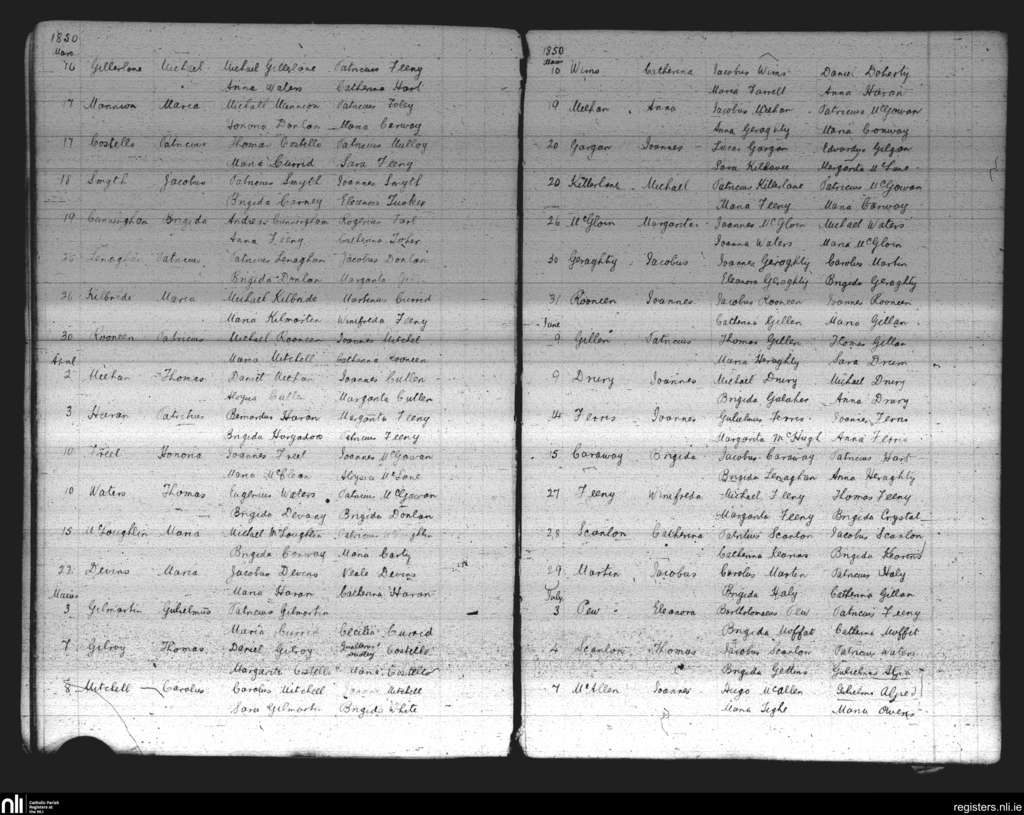 1850
Mar.
16 Gillerlane Michael Michael Gillerlane Patricius Feeny
Anna Waters Catherina Hart
17 Mannion Maria Michael Mannion Patricius Foley
Honora Donlan Maria Conway
17 Costello Patricius Thomas Costello Patricius Mulloy
Maria Currid Sara Feeny
18 Smyth Jacobus Patricius Smyth Joannes Smyth
Brigida Carney Eleonora Tucker
19 Cunningham Brigida Andreas Cunningham Rogerius
Anna Feeny Catherina
Lenaghan Patricius Patricius Lenaghan Jacobus Donlan
Brigida Donlan Margarita
26 Kilbride Maria Michael Kilbride Martinus Currid
Maria Kilmartin Winifreda Feeny
30 Rooneen Patricius Michael Rooneen Joannes Mitchel
Maria Mitchell Catherina Rooneen
April
2 Meehan Thomas Daniel Meehan Joannes Cullen
Aloysia Margarita Cullen
3 Haran Patricius Bernardus Haran Margarita Feeny
Brigida Hargadon Patricius Feeny
10 Freel Honora Joannes Freel Joannes McGowan
Maria McClean Aloysia McLane
10 Waters Thomas Eugenius Waters Patricius McGowan
Brigida Devany Brigida Donlan
15 McLoughlin Maria Michael McLoughlin Patricius McLoughlin
Brigida Conway Maria Carty
22 Devins Maria Jacobus Devins Neale Devins
Maria Haran Catherina Haran
Maius
3 Gilmartin Gulielmus Patricius Gilmartin
Maria Currid Cecilia Currid
7 Gilroy Thomas Daniel Gilroy Costello
Margarita Costello Maria Costello
8 Mitchell Carolus Carolus Mitchell Mitchell
Sara Gilmartin Brigida White
1850
Maius
10 Wims Catherina Jacobus Wims Daniel Doherty
Maria Farrell Anna Haran
19 Meehan Anna Jacobus Meehan Patricius McGowan
Anna Geraghty Maria Conway
20 Gargan Joannes Lucas Gargan Edwardus Gilgan
Sara Margarita McLane
20 Killerlane Michael Patricius Killerlane Patricius McGowan
Maria Feeny Maria Conway
26 McGloin Margarita Joannes McGloin Michael Waters
Joanna Waters Maria McGloin
30 Geraghty Jacobus Joannes Geraghty Carolus Martin
Eleanora Geraghty Brigida Geraghty
31 Rooneen Joannes Jacobus Rooneen Joannes Rooneen
Catherina Gillen Maria Gillan
June
9 Gillen Patricius Thomas Gillen Thomas Gillan
Maria Heraghty Sara Drum
9 Drury Joannes Michael Drury Michael Drury
Brigida Galaher Anna Drury
14 Ferris Joannes Gulielmus Ferris Joannes Ferris
Margarita McHugh Anna Ferris
15 Caraway Brigida Jacobus Caraway Patricius Hart
Brigida Lenaghan Anna Heraghty
27 Feeny Winifreda Michael Feeny Thomas Feeny
Margarita Feeny Brigida Crystal
28 Scanlon Catherina Patricius Scanlon Jacobus Scanlon
Catherina Kearins Brigida Kearins
29 Martin Jacobus Carolus Martin Patricius Haly
Brigida Haly Catherina Gillan
July
3 Pew Eleanora Bartholomeus Pew Patricius Feeny
Brigida Moffat Catherina Moffit
4 Scanlon Thomas Jacobus Scanlon Patricius Waters
Brigida Gettins Gulielmus
7 McAllen Joannes Hugo McAllen Gulielmus Alfred
Maria Tighe Maria Owens
nli
Catholic Parish
Registers at
the NLI
registers.nli.ie